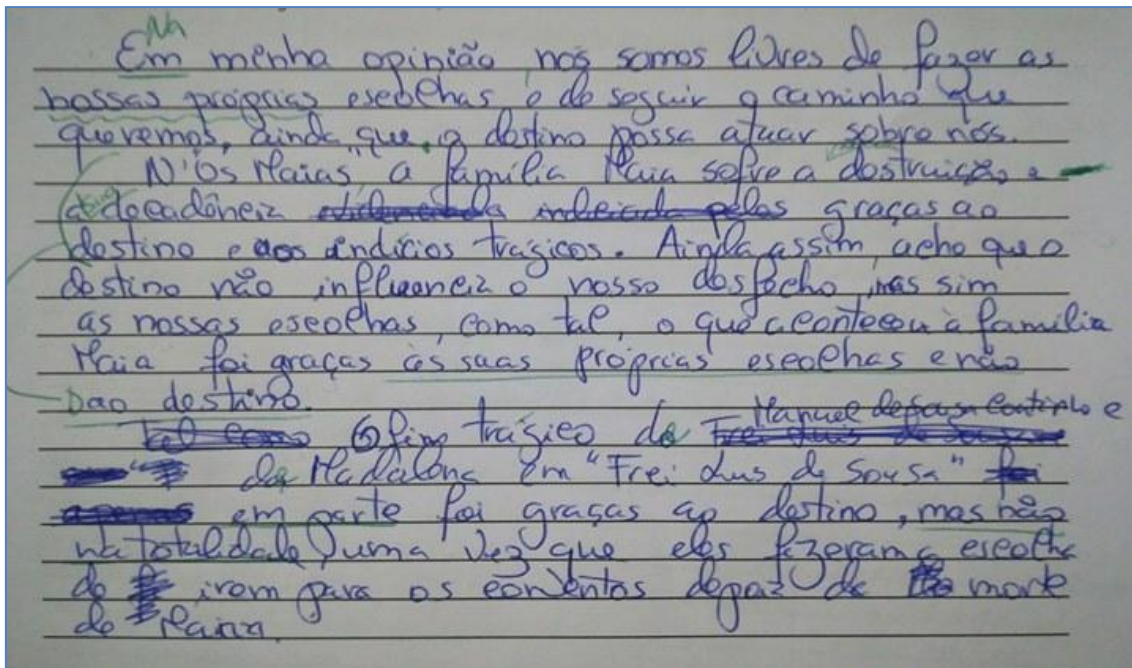 Na
Em minha opinião nós somos livres de fazer as
nossas próprias escolhas e de seguir o caminho que
queremos, ainda que o destino possa atuar sobre nós.
N'Os Maias" a família Maia sofre a destruição e
a decadência indiciada pelas graças ao
destino e aos indícios trágicos. Ainda assim, acho que o
destino não influencia o nosso desfecho, mas sim
as nossas escolhas, como tal, o que aconteceu à família
Maia foi graças às suas próprias escolhas e não
ao destino.
Tal como O fim trágico de Manuel de Sousa Coutinho e
de Madalena em "Frei Luís de Sousa" foi
apenas em parte foi graças ao destino, mas não
na totalidade, uma vez que eles fizeram a escolha
de irem para os conventos depois de morte
de Maria.